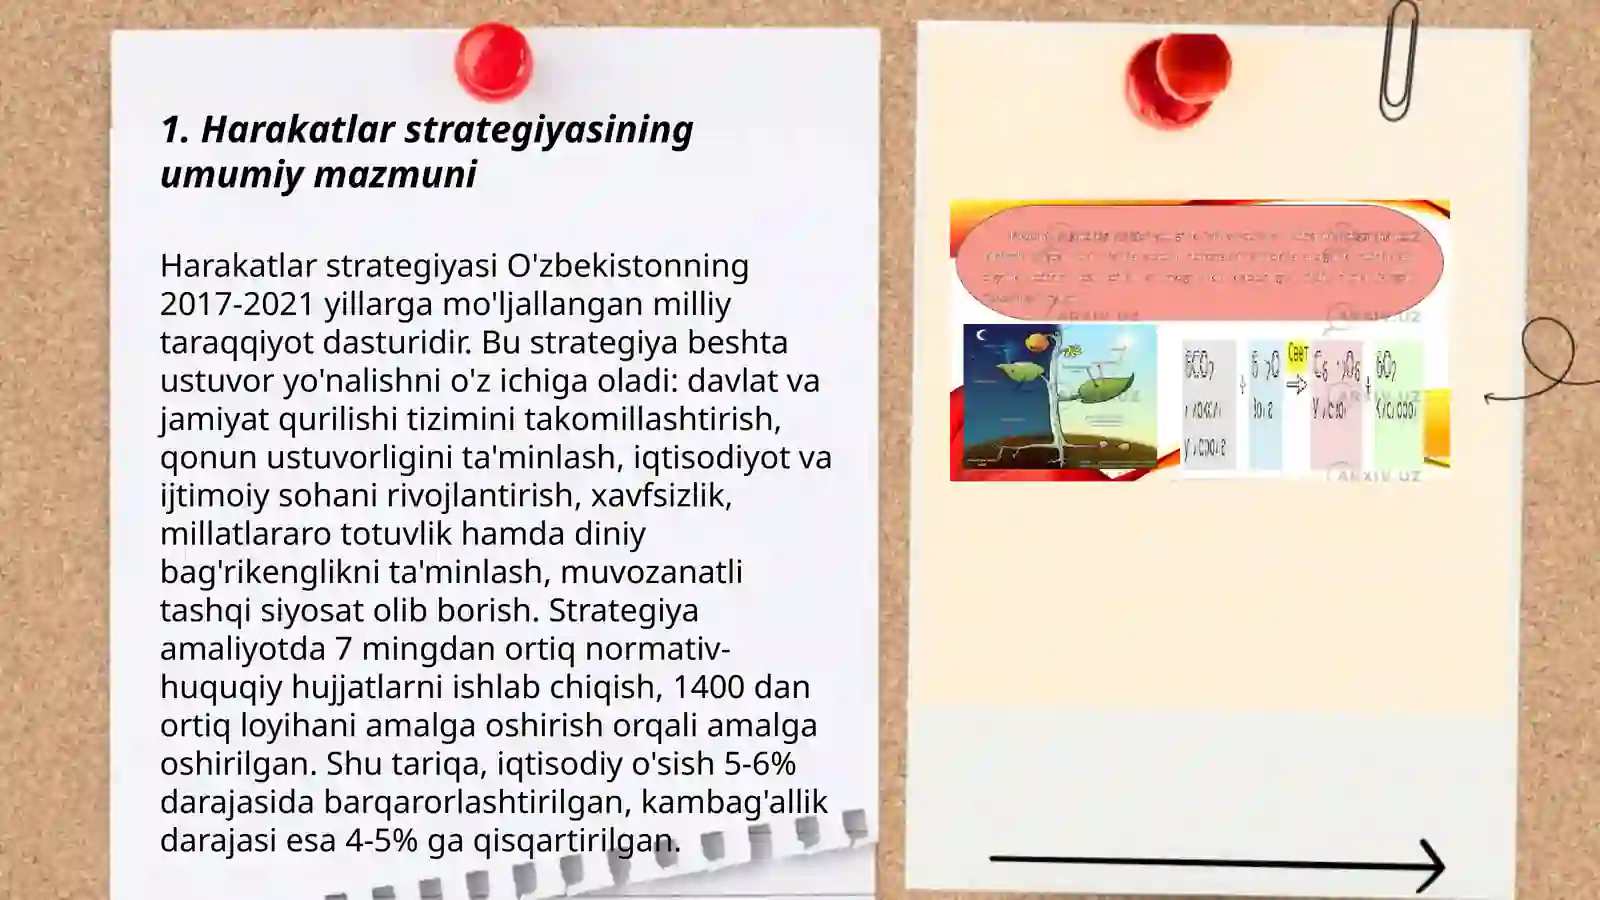 1. Harakatlar strategiyasining
umumiy mazmuni
Harakatlar strategiyasi O'zbekistonning
2017-2021 yillarga mo'ljallangan milliy
taraqqiyot dasturidir. Bu strategiya beshta
ustuvor yo'nalishni o'z ichiga oladi: davlat va
jamiyat qurilishi tizimini takomillashtirish,
qonun ustuvorligini ta'minlash, iqtisodiyot va
ijtimoiy sohani rivojlantirish, xavfsizlik,
millatlararo totuvlik hamda diniy
bag'rikenglikni ta'minlash, muvozanatli
tashqi siyosat olib borish. Strategiya
amaliyotda 7 mingdan ortiq normativ-
huquqiy hujjatlarni ishlab chiqish, 1400 dan
ortiq loyihani amalga oshirish orqali amalga
oshirilgan. Shu tariqa, iqtisodiy o'sish 5-6%
darajasida barqarorlashtirilgan, kambag'allik
darajasi esa 4-5% ga qisqartirilgan.
ARXIV.UZ
ARXIV.UZ
Свет
ARXIV.UZ